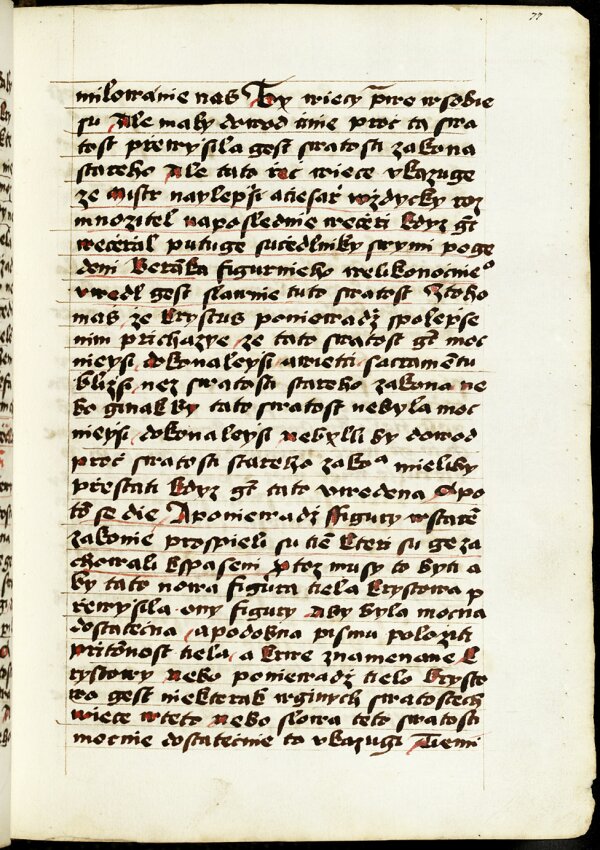 77
milowanie nas Tyx wiecy prwe w sobie
su Ale maly dowod tine proc ta swa
tost přewysila gest swatosti zakona
stareho Ale tato řec wiece vkazuge
ze Mistr naylepssi a ciesař wzdycky roz
mnozitel naposlednie wečeři kdyz gt
wečeřal putuge s učedlniky swymi poge
deni Beranka figurnieho welikonocnieo
vwedl gest slawnie tuto swatost Ztoho
mas ze Krystus poniewadz spolepsse
nim prichazye ze tato swatost gt moc
nieysi dokonaleysi a wietti sacramentu
blizsi nez swatosti stareho zakona ne
bo ginak by tato swatost nebyla moc
nieysi dokonaleysi nebylli by dowod
proč swatosti stareho zakoa mieliby
přestati kdyz gt tato vwedena Apo
to se die A poniewadz ffigury w starem
zakonie prospieli su tiem kteri su ge za
chowali k spaseni y toz musy to byti a
by tato nowa figura tiela Krystowa p
rewysila ony figury Aby byla mocna
dostatečna a podobna pismu poloziti
pritomnost tiela a krwe znamenane K
rystowy nebo poniewadz tielo Krysto
wo gest niekterak w ginych swatostech
wiece w teto nebo slowa teto swatosti
mocnie dostatecnie to vkazugi Tiemi